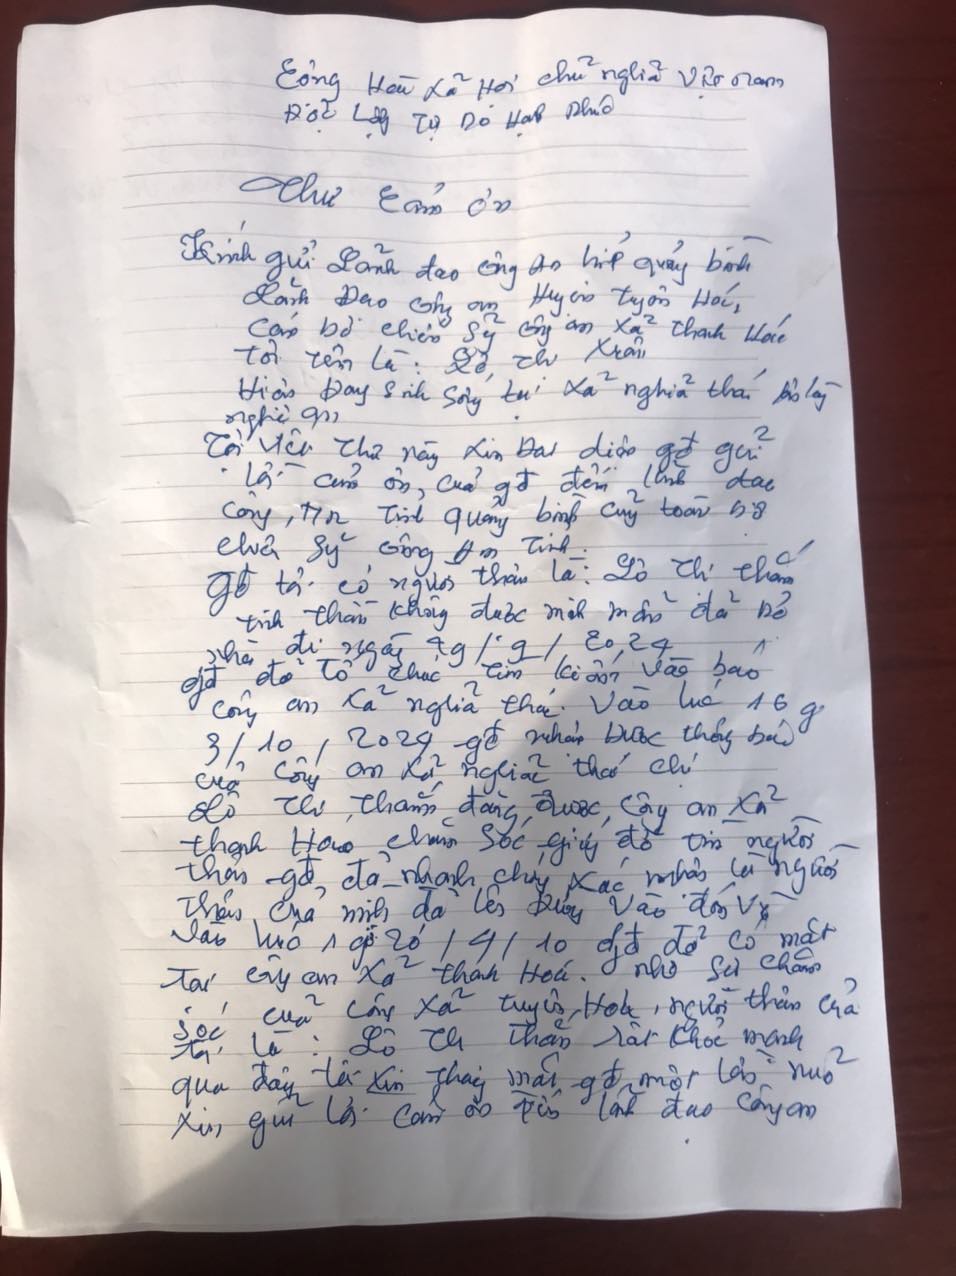 Cộng Hoà Xã Hội chủ nghĩa Việt nam
Độc Lập Tự Do Hạnh Phúc
Thư Cảm ơn
Kính gửi Lãnh đạo công An tỉnh quảng bình
Lãnh Đạo công an Huyện tuyên Hoá,
cán bộ chiến sỹ công an xã thanh Hoá
tôi tên là: Lô thị Xuân
Hiện Đang sinh sống tại xã nghĩa thái
nghệ an
Tôi viết thư này xin Đại diện gđ gửi
lời cảm ơn, của gđ đến lãnh đạo
công an Tỉnh quảng bình cùng toàn bộ
chiến sỹ công an Tỉnh.
gđ tôi có người thân là: Lô thị thắm
tinh thần không được minh mẫn đã bỏ
nhà đi ngày 29/9/2024
gđ đã tổ chức tìm kiếm vào báo
công an xã nghĩa thái. Vào lúc 16 g
3/10/2024 gđ nhận được thông báo
của công an xã nghĩa thái chị
Lô thị thắm đang được, công an xã
thanh Hoá chăm sóc giúp đỡ tìm người
thân gđ, đã nhanh chóng xác nhận là người
thân của mình đã lên đường vào đón về
vào lúc 1 giờ 20 /4/10 gđ đã có mặt
tại công an xã thanh Hoá. nhờ sự chăm
sóc của công xã tuyên Hoá, người thân của
tôi là: Lô thị thắm rất khoẻ mạnh
qua đây tôi xin thay mặt gđ một lần nữa
xin gửi lời cảm ơn đến lãnh đạo công an